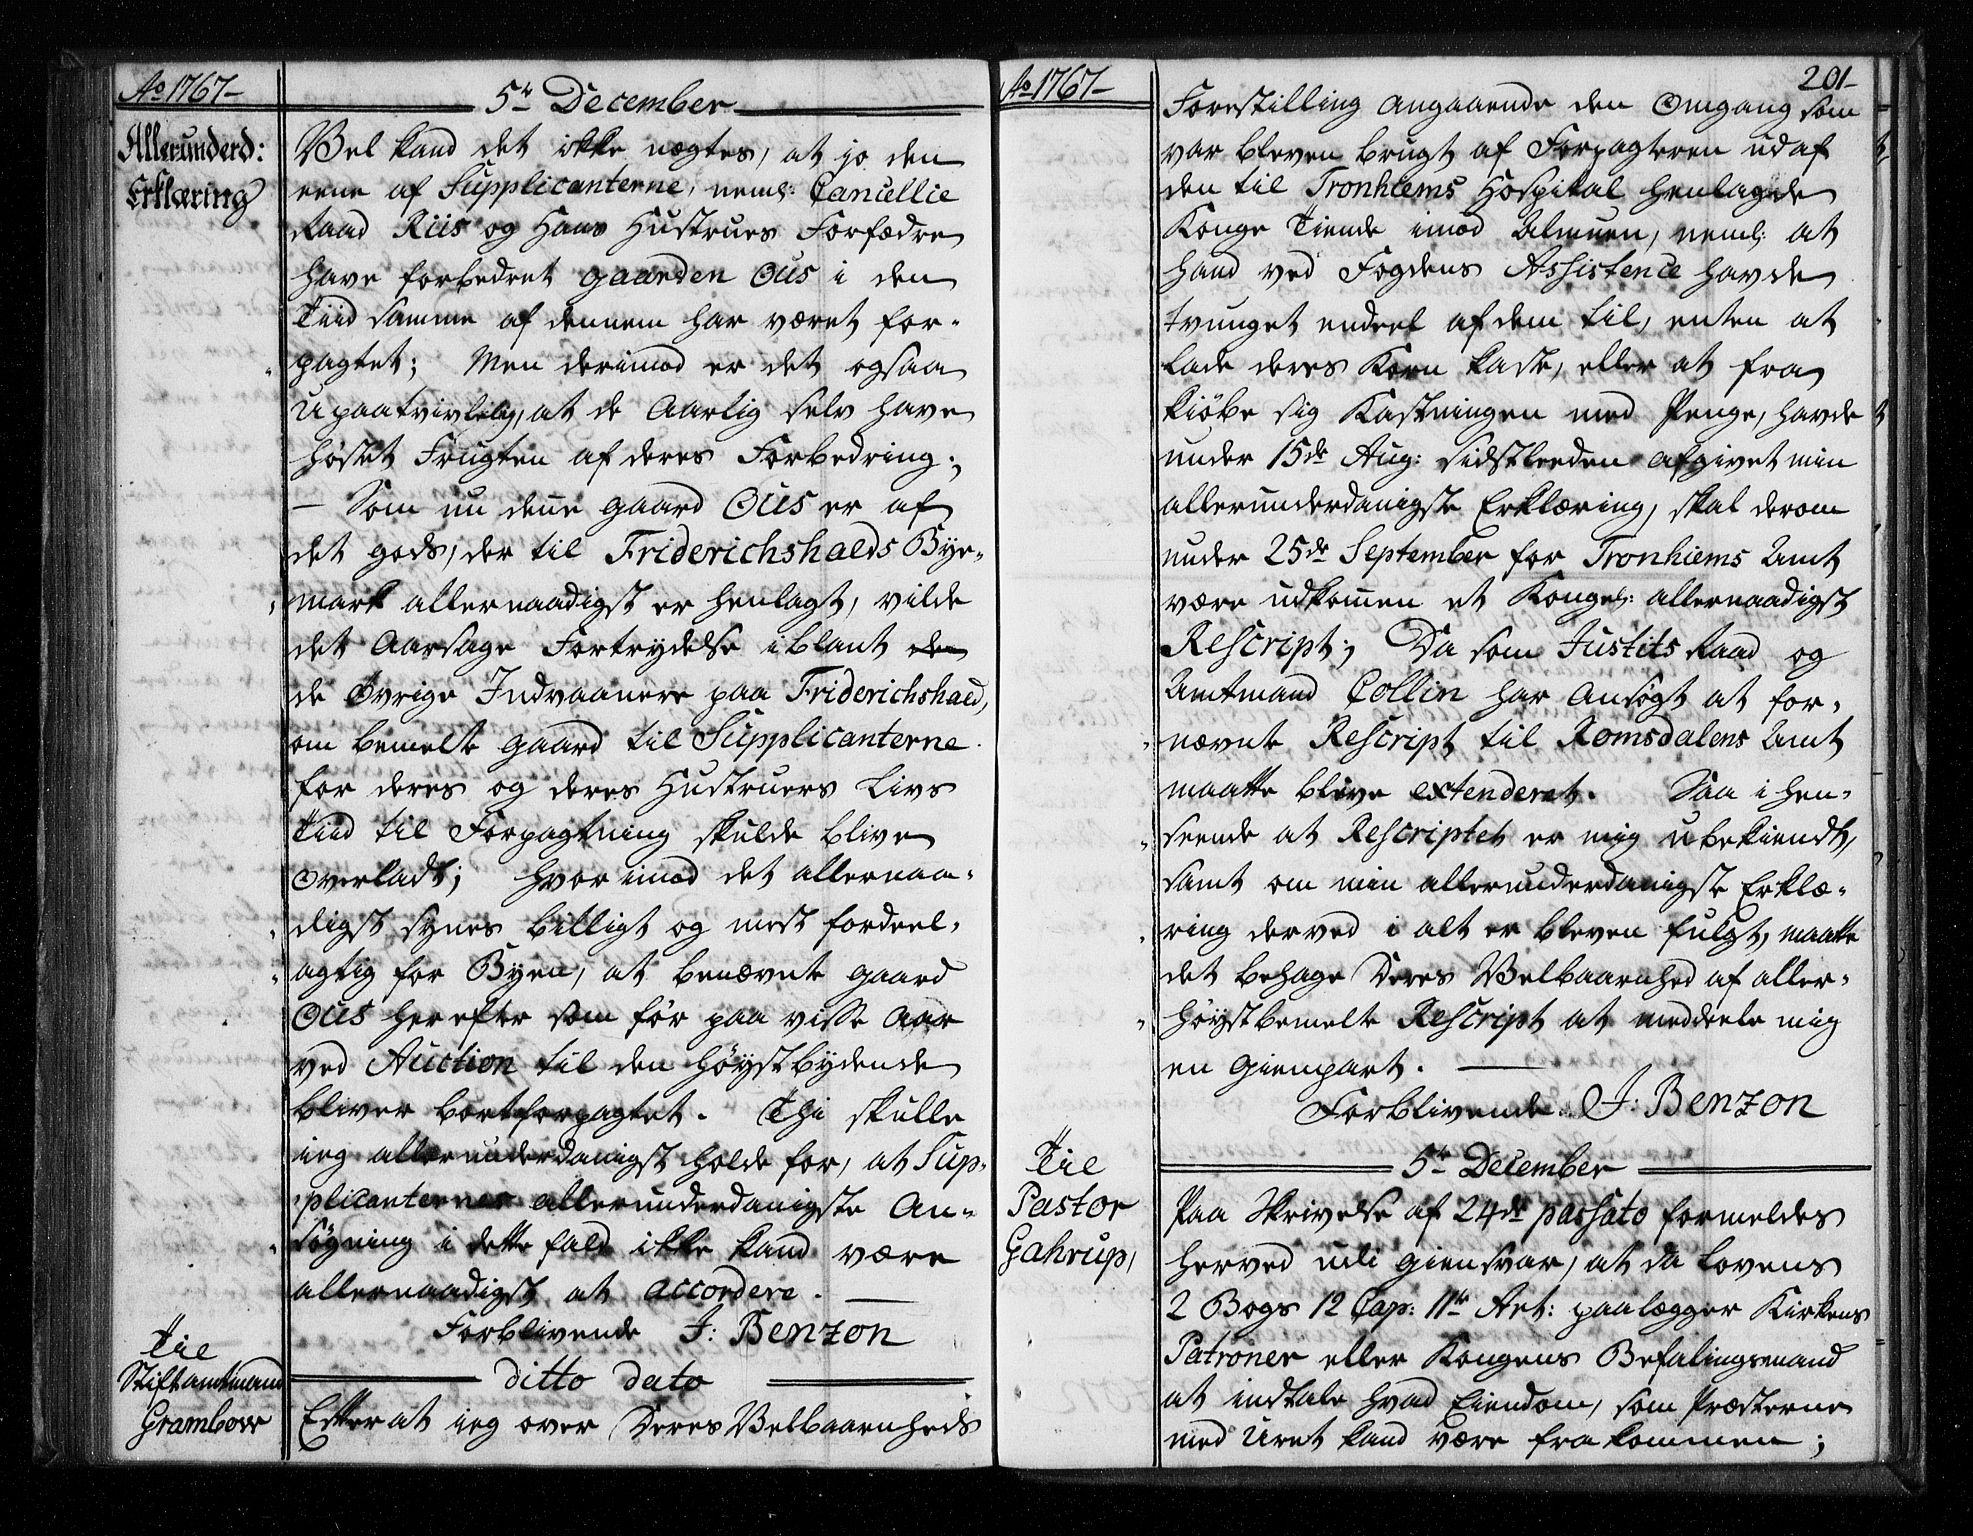 Ao 1767-
5te December
Allerunderd:
Erklæring
Vel kand det ikke nægtes, at jo den
eene af Supplicanterne, neml: Cancellie
Raad Riis og Hans Hustrues Forfædre
have forbedret gaarden Ous i den
Tiid samme af dennem har været for-
pagtet; Men derimod er det ogsaa
upaatvivlelig, at de Aarlig selv have
høstet Frugten af deres Forbedring;
- Som nu dene gaard Ous er af
det gods, der til Friderichshalds Bye-
mark allernaadigst er henlagt, vilde
det Aarsage Fortrydelse iblant de
de Øvrige Indvaanere paa Friderichshald,
om bemelte gaard til Supplicanterne
for deres og deres Hustruers Livs
Tiid til Forpagtning skulde blive
Overladt; hvorimod det allernaa-
digst synes billigt og mest fordeel-
agtig for Byen, at benævnte gaard
Ous herefter som før paa visse Aar
ved Auction til den høystbydende
bliver bortforpagtet. Thi skulle
ieg allerunderdanigst holde for, at Sup-
plicanternes allerunderdanigste An-
søgning i dette fald ikke kand være
allernaadigst at accordere.
Forblivende J: Benzon
Til
Stiftamtmand
Grambow
ditto dato
Efterat ieg over Deres Velbaarenheds
Ao 1767-
201-
Forestilling angaaende den Omgang som
var bleven brugt af Forpagteren udaf
den til Tronhiems Hospital henlagde
Konge Tiende imod Almuen, neml: at
hand ved Fogdens Assistence havde
tvunget endeel af dem til, enten at
lade deres Korn kaste, eller at fra
kiøbe sig Kastningen med Penge, havde
under 15de Aug: sidstleeden afgivet min
allerunderdanigste Erklæring, skal derom
under 25de September for Tronhiems Amt
være udkomen et Kongel: allernaadigst
Rescript; Da som Justits Raad og
Amtmand Collin har ansøgt at for-
nævnte Rescript til Romsdalens Amt
maatte blive extenderet. Saa i hen-
seende at Rescriptet er mig ubekiendt,
samt om min allerunderdanigste Erklæ-
ring derved i alt er bleven fulgt, maatte
det behage Deres Velbaarnhed af aller-
høystbemelte Rescript at meddeele mig
en gienpart.
Forblivende J: Benzon
Til
Pastor
Gahrup,
5te December
Paa Skrivelse af 24de passato formeldes
herved udi giensvar, at da Lovens
2 Bogs 12 Cap: 11te Art: paalægger Kirkens
Patroner eller Kongens Befalingsmand
at indtale hvad Eiendom, som Præsterne
med Uret kand være frakommen;